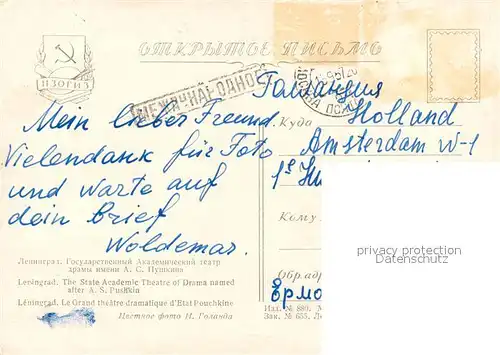 ИЗОГИЗ
ОТКРЫТОЕ ПИСЬМО
МЕЖДУНАРОДНОЕ
Mein lieber Freund.
Vielendank für Foto
und warte auf
dein Brief
Woldemar.
Ленинград. Государственный Академический театр
драмы имени А. С. Пушкина
Leningrad. The State Academic Theatre of Drama named
after A. S. Pushkin
Léningrad. Le Grand théâtre dramatique d'Etat Pouchkine
Цветное фото И. Голанда
Голландия
Куда Holland
Amsterdam W-1
Кому
Обр. адр
Изд. № 880.
Зак. № 655.
privacy protection
AnsichtskartenVersand.com